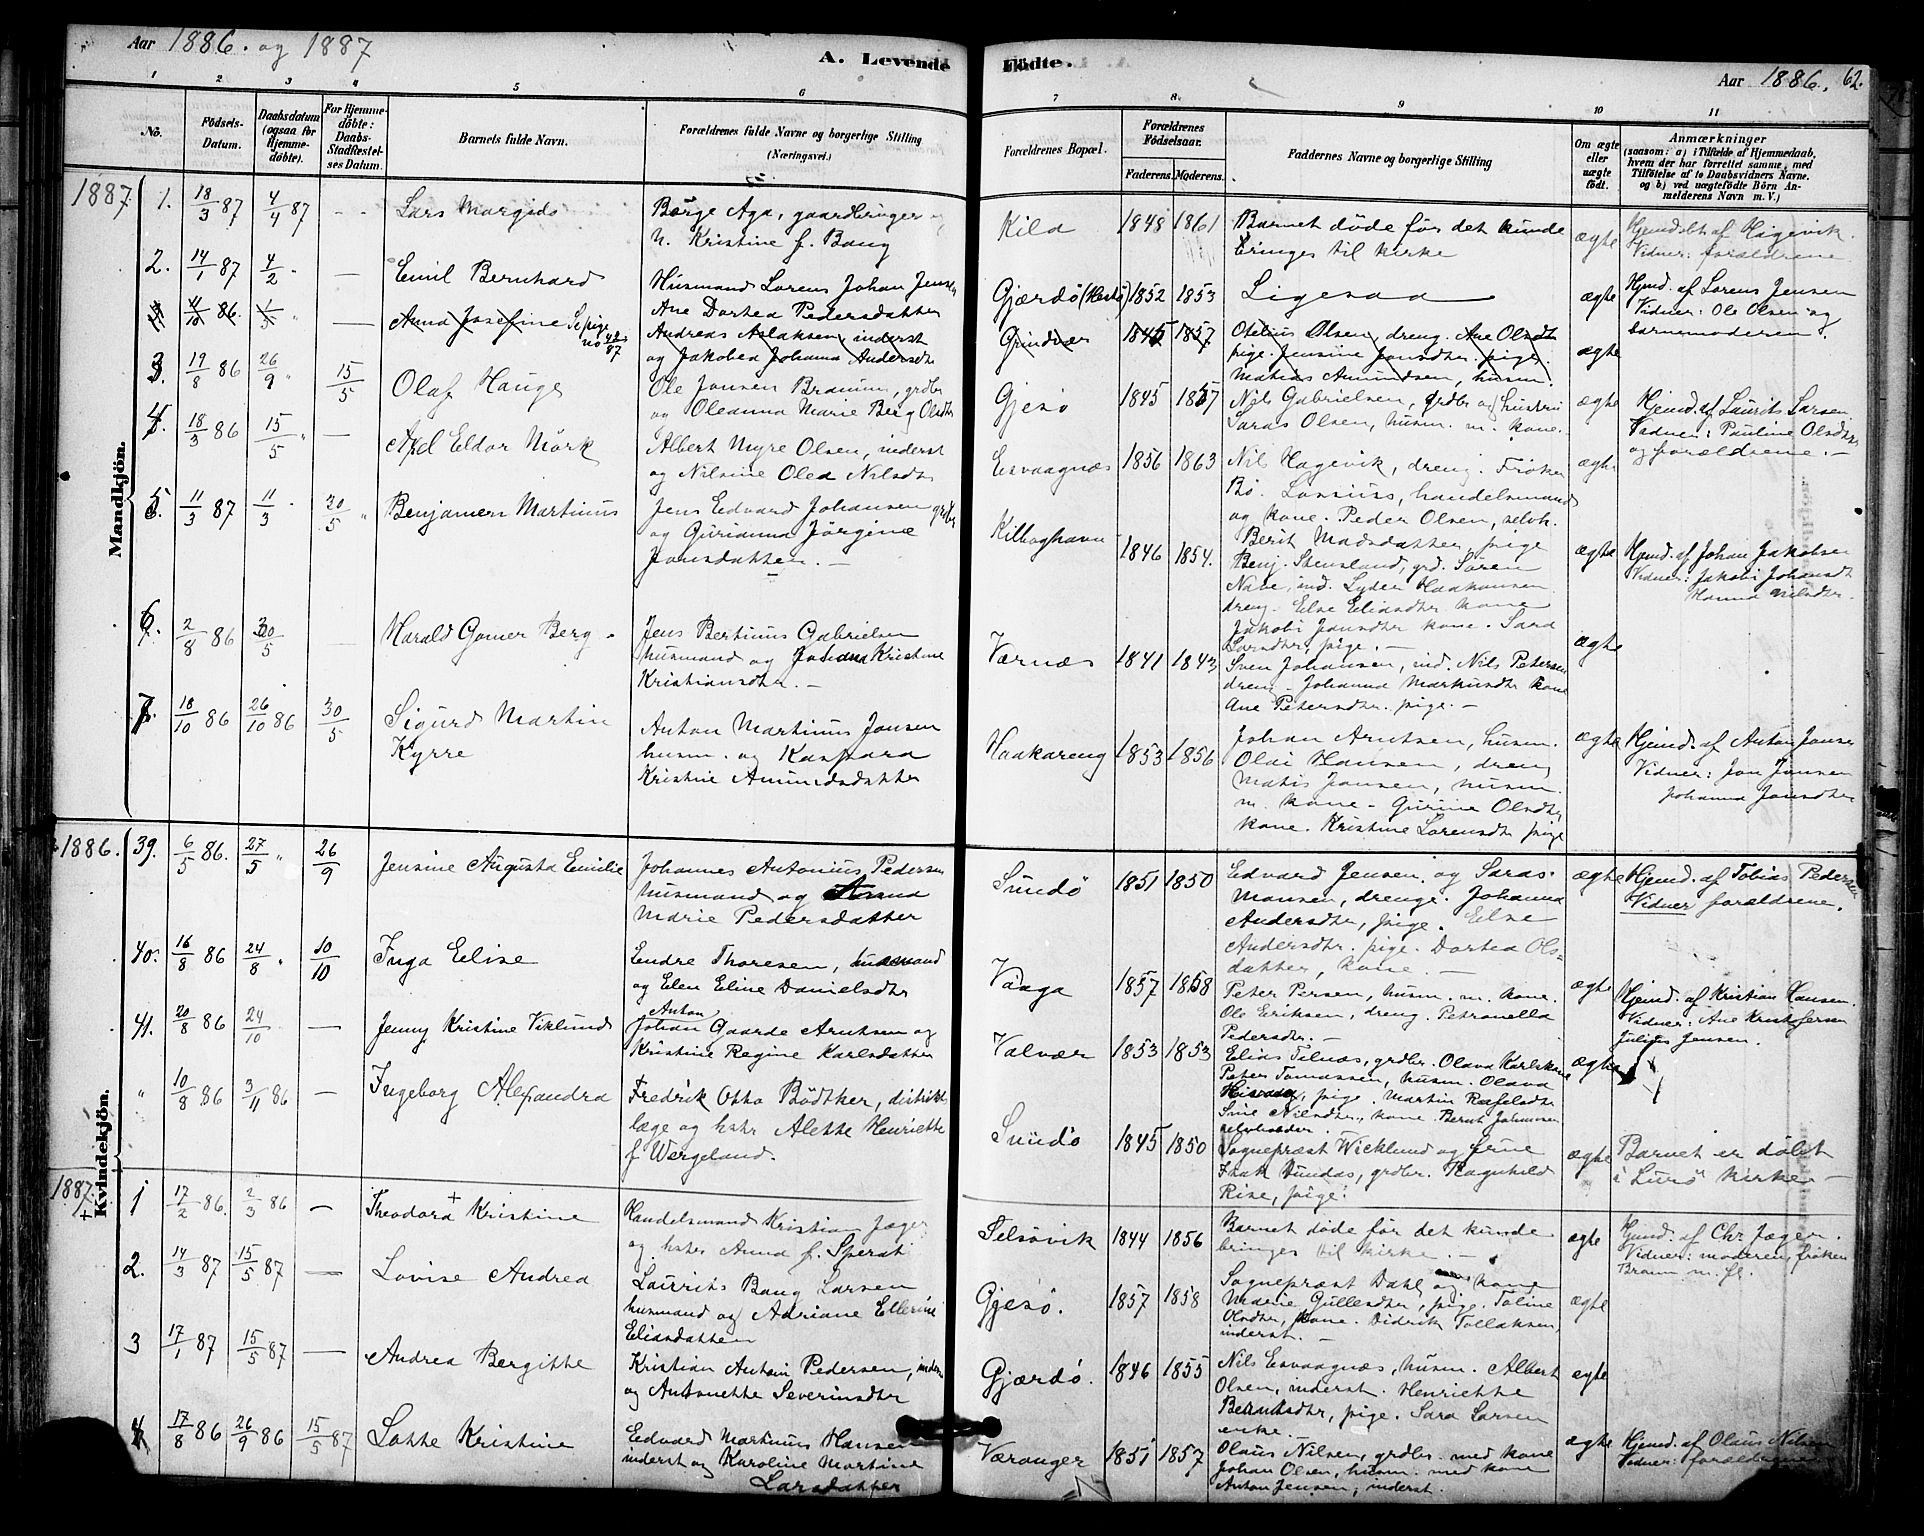 Aar 1886. og 1887
A. Levende Födte.
Aar 1886. 62.
1 2 3 4 5 6 7 8 9 10 11
No.
Födsels-Datum.
Daabsdatum (ogsaa for Hjemmedöbte).
For Hjemmedöbte: Daabs-Stadfæstelses Datum.
Barnets fulde Navn.
Forældrenes fulde Navne og borgerlige Stilling
(Næringsvei.)
Forældrenes Bopæl.
Forældrenes Födselsaar.
Faderens. Moderens.
Faddernes Navne og borgerlige Stilling
Om ægte eller uægte födt.
Anmærkninger
(saasom: a) i Tilfælde af Hjemmedaab, hvem der har forrettet samme, med Tilföielse af to Daabsvidners Navne, og b) ved uægtefödte Börn Anmelderens Navn m. V.)
Mandkjön.
1887
1. 18/3 87 4/4 87 - - Lars Margido
Børge Aga, gaardbruger
h. Kristine f. Bang
Kila 1848 1861
Barnet døde før det kunde
bringes til kirke
ægte
Hjemdøbt af Hagevik.
Vidner: forældrene
2. 14/1 87 4/2 - Emil Bernhard
Husmand Lorens Johan Jensen
Ane Dortea Pedersdatter
Gjærdö (Hestö) 1852 1853
Ligesaa
ægte
Hjmd. af Lorens Jensen
Vidner: Ole Olsen og
barnemoderen.
4/10 86. 1/5 " - Anna Josefine Se pige no
Andreas Aslaksen, inderst
og Jakobea Johanna Andersdt
Grindvær 1845 1857
Otelius Olsen, dreng. Ane Olsdt
pige. Jensine Jonsdtr. pige.
Matias Amundsen, husm.
ægte
3. 19/8 86 26/9 " 15/5 Olaf Hauge
Ole Jonsen Bramm, grdbr
og Oleanna Marie Berg Olsdtr
Gjesø 1845 1857
Nils Gabrielsen, grdbr og hustru
Saras Olsen, husm. m. kone.
ægte
Hjemd. af Laurits Larsen
Vidner: Pauline Olsdtr
og forældrene. -
4. 18/3 86 15/5 " - Axel Eldor Mörk
Albert Myre Olsen, inderst
og Nilsine Olea Nilsdtr
Esvaagnæs 1856 1863
Nils Hagevik, dreng. Frøken
Bø. Lossius, handelsmand
og kone. Peder Olsen, selvh.
Berit Madsdatter, pige
ægte
5. 11/3 87 11/3 - 30/5 " Benjamen Martinus
Jens Edvard Johansen grdbr
og Gurianna Jørgine
Jonsdatter. -
Kilboghavn 1846 1854.
Benj. Stensland, grd. Sören
Nave, ind. Lyder Haakonsen
dreng. Else Eliasdtr. kone
Jakobi Jonsdtr kone. Sara
Larsdtr, pige. -
ægte
Hjmd. af Johan Jakobsen
Vidner: Jakobi Johansdt
Hanna Nilsdtr.
6. 2/8 86 30/5 - Harald Gomer Berg.
Jens Bertinus Gabrielsen
husmand og Johanna Kristine
Kristiansdtr. -
Værnæs 1841 1843
Sven Johansen, ind. Nils Petersen
dreng - Johanna Markusdtr kone
Ane Petersdtr. pige. -
ægte
7. 18/10 86 26/10 86 30/5 Sigurd Martin
Kyrre
Anton Martinus Jonsen
husm. og Kaspara
Kristine Amundsdatter
Haakareng 1853 1856
Johan Arntsen, husm.
Olai Hansen, dreng
Matis Jonsen, husm.
m. kone - Gurine Olsdtr
kone. Kristine Lorensdtr pige
ægte
Hjemd. af Anton Jonsen
Vidner: Jon Jonsen
Johanna Jonsdtr
Kvindekjön.
1886.
39. 6/5 86. 27/5 " 26/9 Jensine Augusta Emilie
Johannes Antonius Pedersen
husmand og Anna
Marie Pedersdatter
Sundö 1851 1850
Edvard Jensen og Saras
Monsen, drenge. Johanna
Andersdtr, pige. Else
Andersdtr. pige. Dortea Ols=
datter, kone. -
ægte
Hjemd. af Tobias Pedersen
Vidner forældrene.
40. 16/8 86 24/8 " 10/10 Inga Elise
Endre Thoresen, husmand
og Elen Eline Danielsdtr
Vaaga 1857 1858
Peter Persen, husm. m. kone.
Ole Eriksen, dreng. Petronella
Pedersdtr. -
ægte
Hjemd. af Kristian Hansen.
Vidner: Ane Kristofersen
Julius Jensen.
41. 20/8 86 24/10 - Jenny Kristine Viklund
Anton
Johan Gaarde Arntsen og
Kristine Regine Karlsdatter
Valvær 1853 1853
Elias Tilnæs, grdbr. Olava Karlsdtr
Peter Tomassen, husm. Olava
pige. Martin Rafelsdtr
Sine Nilsdtr., kone Bernt Johansen
selveholder.
ægte
" 10/8 86 3/11 86 - Ingeborg Alexandra
Fredrik Otto Bödtker, distrikts-
læge og hstr. Alette Henriette
f. Wergeland.
Sundö 1845 1850
Sognepræst Wicklund og frue
Isak Sundas, grdbr. Ragnhild
Rise, pige.
ægte
Barnet er döbt
i Lurö kirke. -
1887.
+
1 17/2 86. 2/3 86 - Theodora + Kristine
Handelsmand Kristian Jæger
og hstr Anna f. Sperat
Selsövik 1844 1856
Barnet døde før det kunde
bringes til kirke. -
ægte
Hjmd. af Chr. Jæger.
Vidner: moderen, frøken
Bramm m. fl.
2. 14/3 87 15/5 87 - Lovise Andrea
Laurits Bang Larsen
husmand og Adriane Ellerine
Eliasdatter
Gjesø. 1857 1858
Sognepræst Dahl og kone
Marie Gullesdtr, pige. Toline
Olsdtr, kone. Didrik Tollaksen,
inderst. -
ægte
3 17/1 87 15/5 87 - Andrea Bergitte
Kristian Antoni Pedersen, inderst
og Antonette Severinsdtr
Gjærdö. 1846 1855
Nils Esvaagnæs, husm. Albert
Olsen, inderst. Henriette
Berntsdtr, pige. Sara Larsen
enke. -
ægte
4 17/8 86 26/9 86 15/5 87 Lotte Kristine
Edvard Martinus Hansen
inderst og Karoline Martine
Larsdatter
Væranger 1851 1857
Olaus Nilsen, grdbr. med kone
Johan Olsen, husm. med kone
Anton Jensen, inderst.
ægte
Hjemd. af Olaus Nilsen
Vidner: forældrene